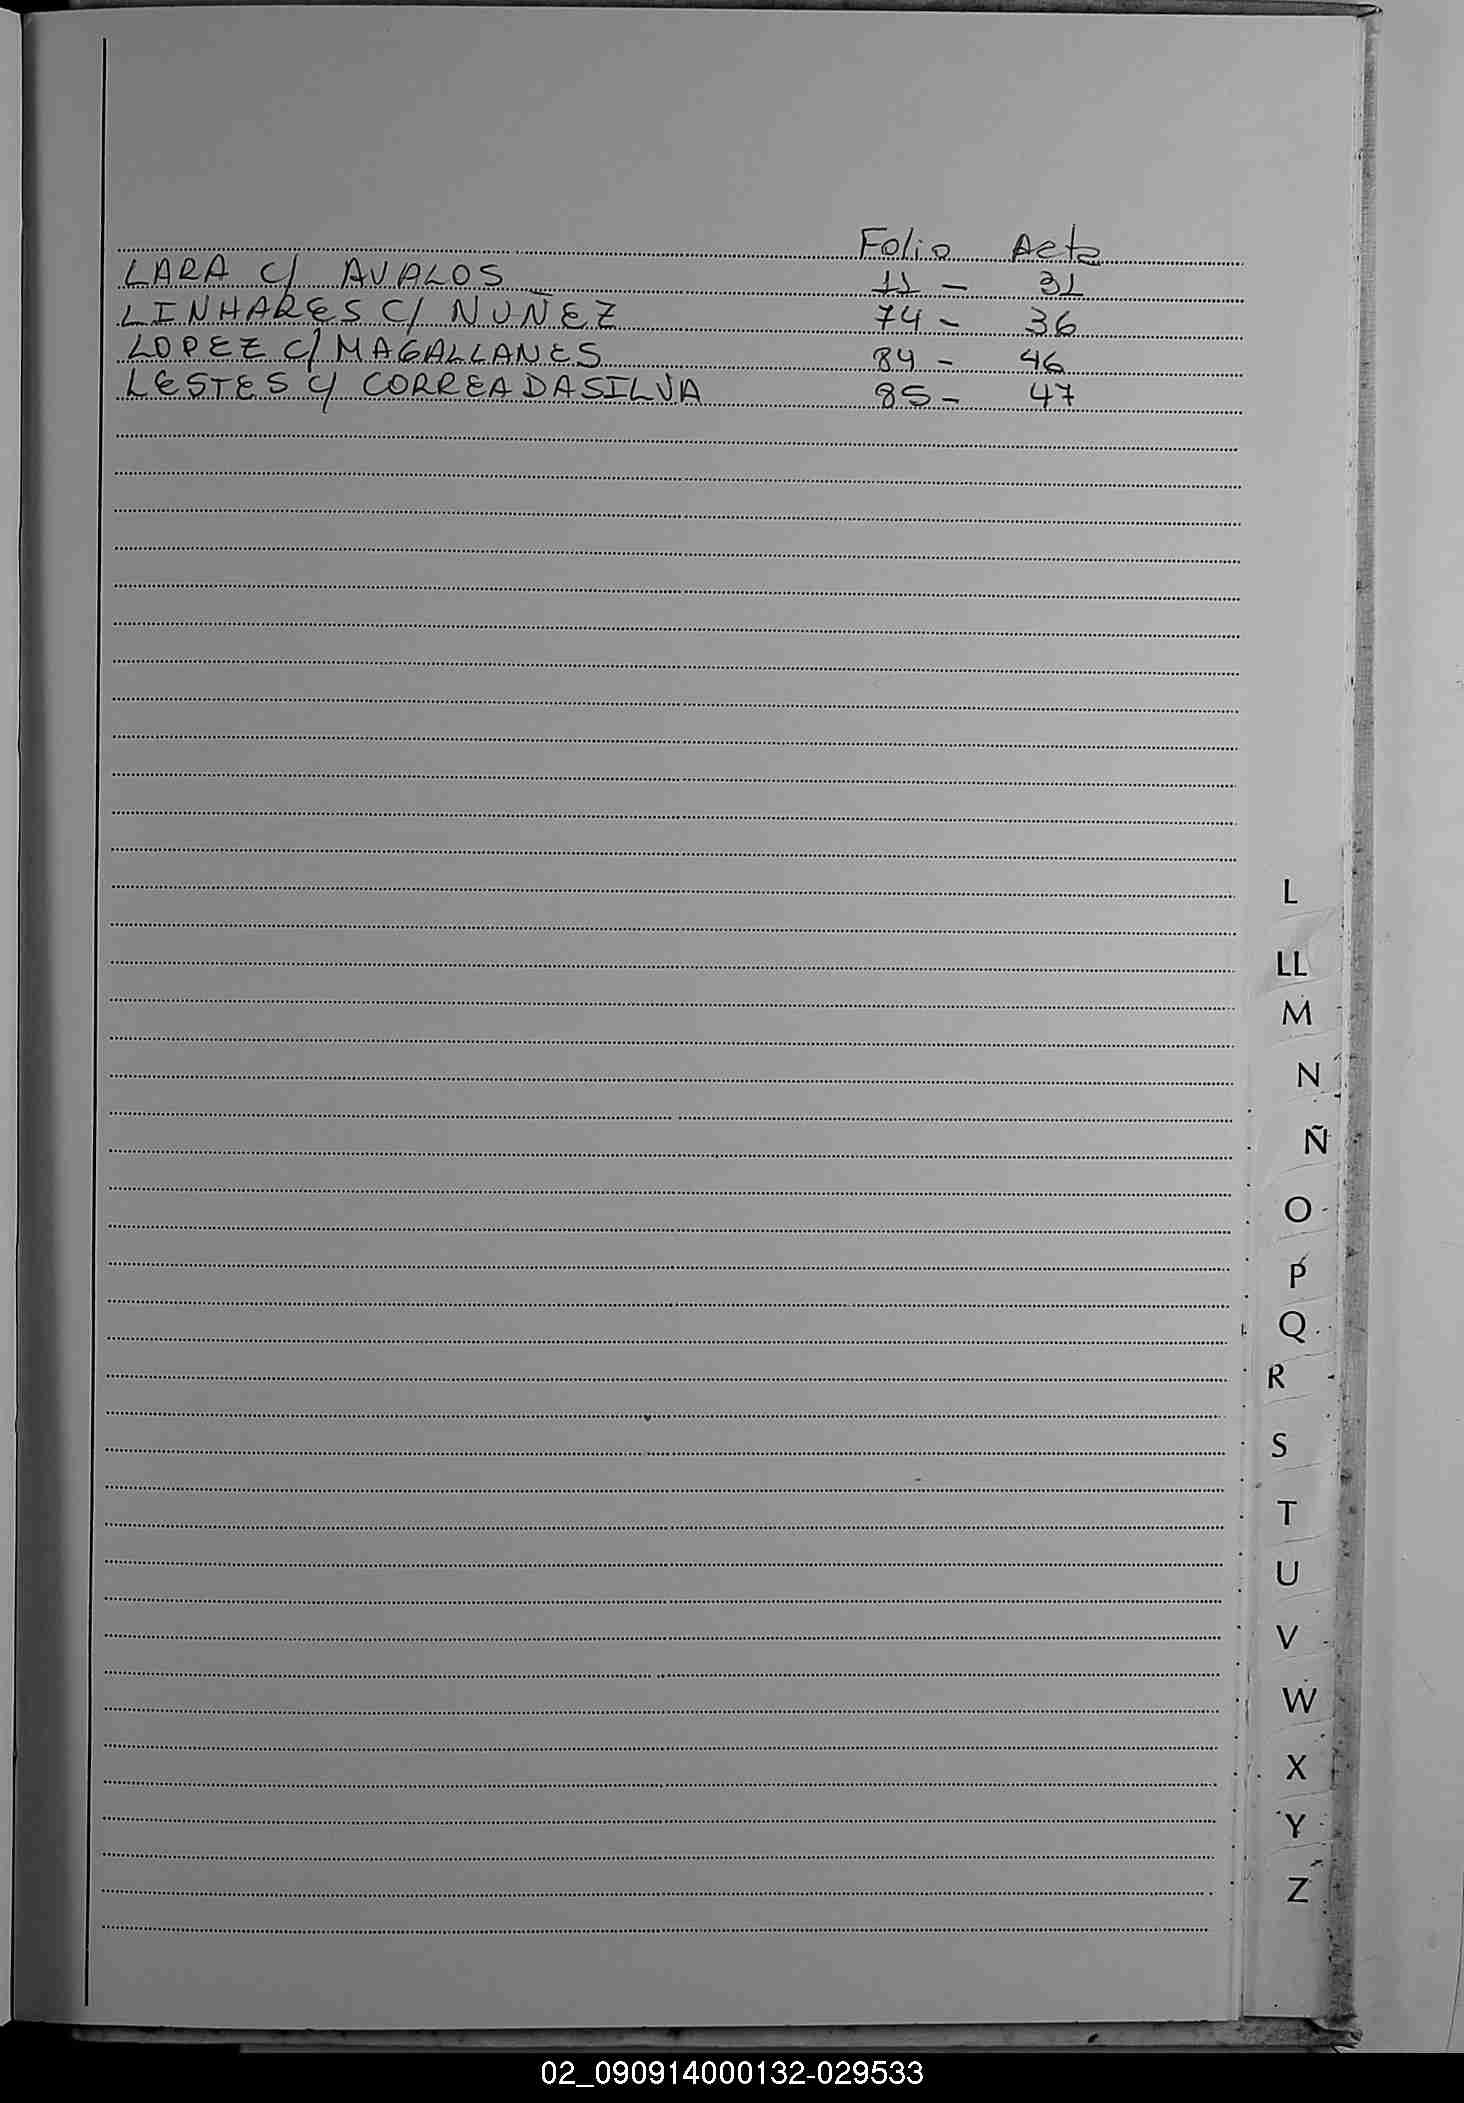 Folio Acta
LARA c/ AVALOS 11 - 31
LINHARES C/ NUÑEZ 74 - 36
LOPEZ C/ MAGALLANES 84 - 46
LESTES c/ CORREA DA SILVA 85 - 47
L
LL
M
N
Ñ
O
P
Q
R
S
T
U
V
W
X
Y
Z
02_090914000132-029533